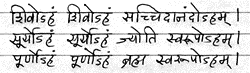 शिवोऽहं शिवोऽहं सच्चिदानंदोऽहम् ।
सूर्योऽहं सूर्योऽहं ज्योति स्वरूपोऽहम् ।
पूर्णोऽहं पूर्णोऽहं ब्रह्म स्वरूपोऽहम् ।